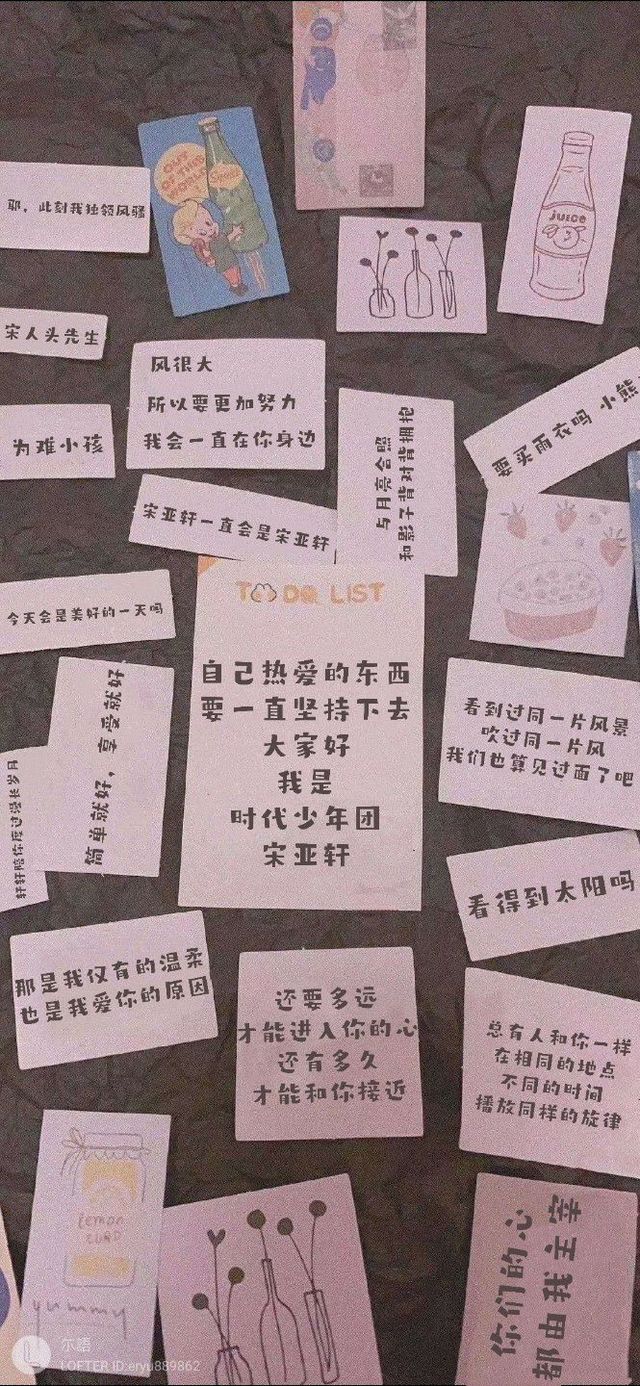 OUT
OF THIS
WORLD
JUICE
耶，此刻我独领风骚
宋人头先生
风很大
所以要更加努力
我会一直在你身边
为难小孩
与月亮合照
和影子背对背拥抱
要买雨衣吗 小熊
宋亚轩一直会是宋亚轩
今天会是美好的一天吗
TO DO LIST
自己热爱的东西
要一直坚持下去
大家好
我是
时代少年团
宋亚轩
简单就好，享受就好
看到过同一片风景
吹过同一片风
我们也算见过面了吧
轩轩陪你度过漫长岁月
看得到太阳吗
那是我仅有的温柔
也是我爱你的原因
还要多远
才能进入你的心
还有多久
才能和你接近
总有人和你一样
在相同的地点
不同的时间
播放同样的旋律
Lemon
CURD
yummy
你们的心
都由我主宰
尔晤
LOFTER ID:eryu889862